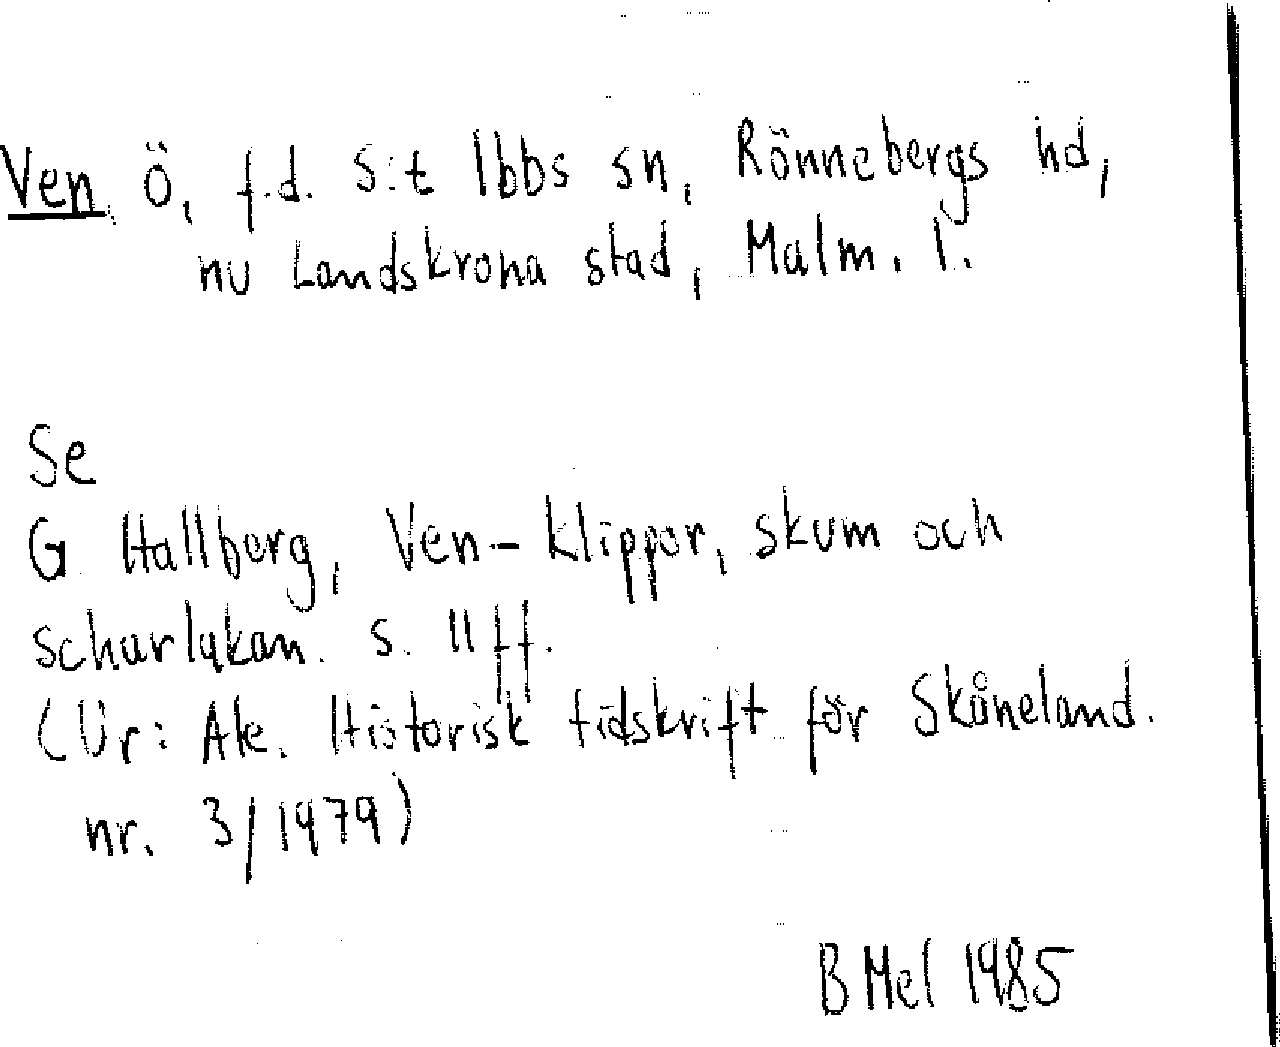 Ven, Ö, f.d. S:t Ibbs sn, Rönnebergs hd,
nu Landskrona stad, Malm. l.
Se
G Hallberg, Ven - klippor, skum och
scharlakan. s. 11 ff.
(Ur: Ale. Historisk tidskrift för Skåneland.
nr. 3/1979)
B Mel 1985